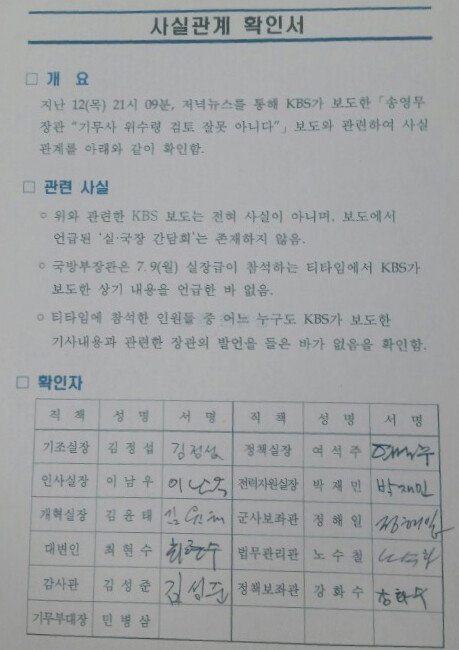 사실관계 확인서
□ 개 요
지난 12(목) 21시 09분, 저녁뉴스를 통해 KBS가 보도한「송영무
장관 “기무사 위수령 검토 잘못 아니다”」보도와 관련하여 사실
관계를 아래와 같이 확인함.
□ 관련 사실
○ 위와 관련한 KBS 보도는 전혀 사실이 아니며, 보도에서
언급된 ‘실·국장 간담회’는 존재하지 않음.
○ 국방부장관은 7. 9(월) 실장급이 참석하는 티타임에서 KBS가
보도한 상기 내용을 언급한 바 없음.
○ 티타임에 참석한 인원들 중 어느 누구도 KBS가 보도한
기사내용과 관련한 장관의 발언을 들은 바가 없음을 확인함.
□ 확인자
직 책 성 명 서 명 직 책 성 명 서 명
기조실장 김 정 섭 김정섭 정책실장 여 석 주 여석주
인사실장 이 남 우 이남우 전력자원실장 박 재 민 박재민
개혁실장 김 윤 태 김윤태 군사보좌관 정 해 일 정해일
대변인 최 현 수 최현수 법무관리관 노 수 철 노수철
감사관 김 성 준 김성준 정책보좌관 강 화 수 강화수
기무부대장 민 병 삼